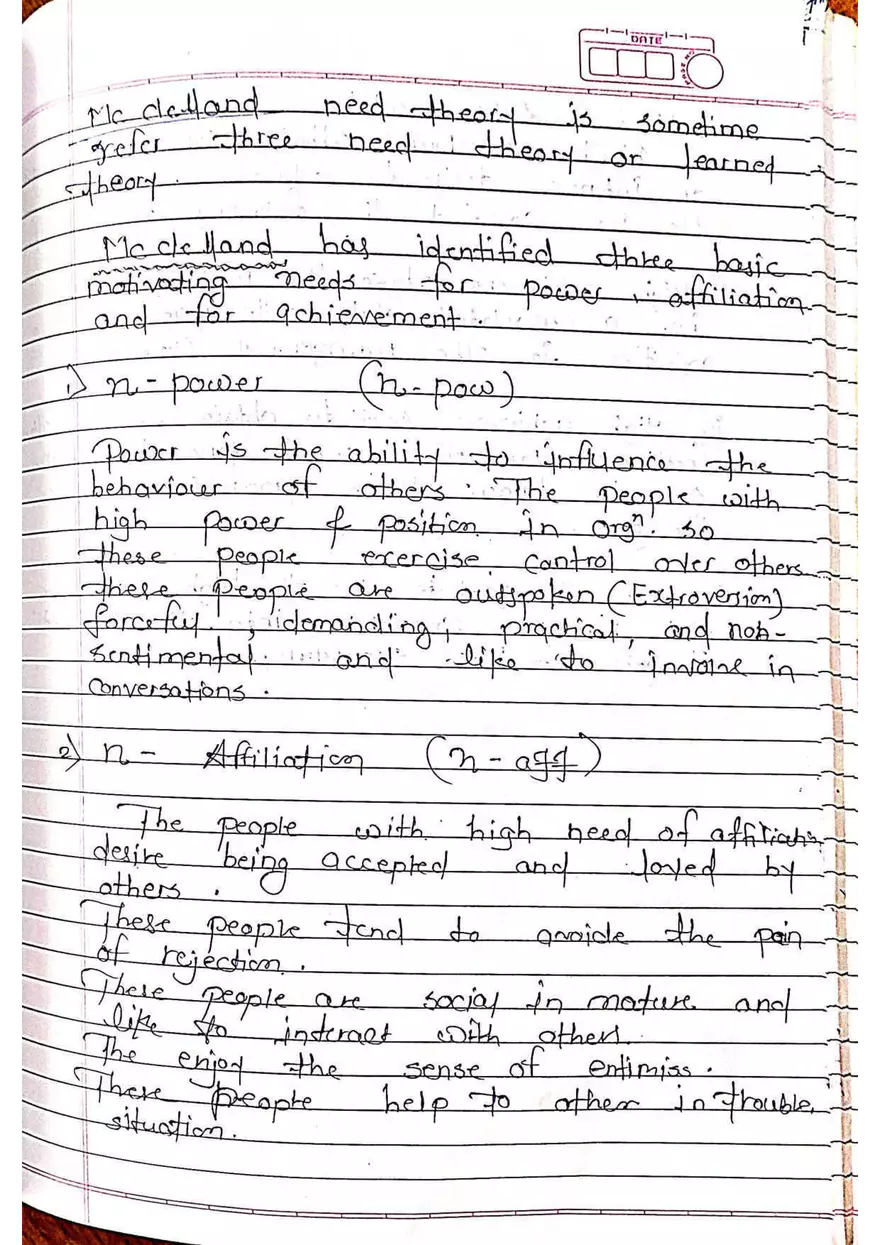 DATE
Mc clelland need theory is sometime
refer three need theory or learned
theory.
Mc clelland has identified three basic
motivating needs for power, affiliation
and for achievement.
1) n - power (n - pow)
Power is the ability to influence the
behaviour of others. The people with
high power & position in orgⁿ. so
these people exercise control over others
these people are outspoken (Extroversion)
forceful, demanding, practical, and non-
sentimental and like to invoine in
conversations.
2) n - Affiliation (n - aff)
The people with high need of
desire being accepted and loved by
others.
These people tend to avoide the pain
of rejection.
These people are social in nature and
like to interact with others.
The enjoy the sense of entimiss.
These people help to other in trouble
situation.